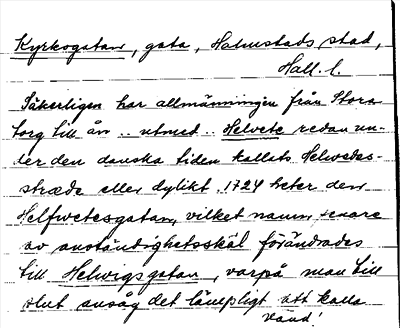 Kyrkogatan, gata, Halmstads stad,
Hall. l.
Säkerligen har allmänningen från Stora
torg till ån .. utmed .. Helvete redan un-
der den danska tiden kallats Helvedes-
stræde eller dylikt. 1724 heter den
Helfwetesgatan, vilket namn senare
av anständighetsskäl förändrades
till Helwigsgatan, varpå man till
slut ansåg det lämpligt att kalla